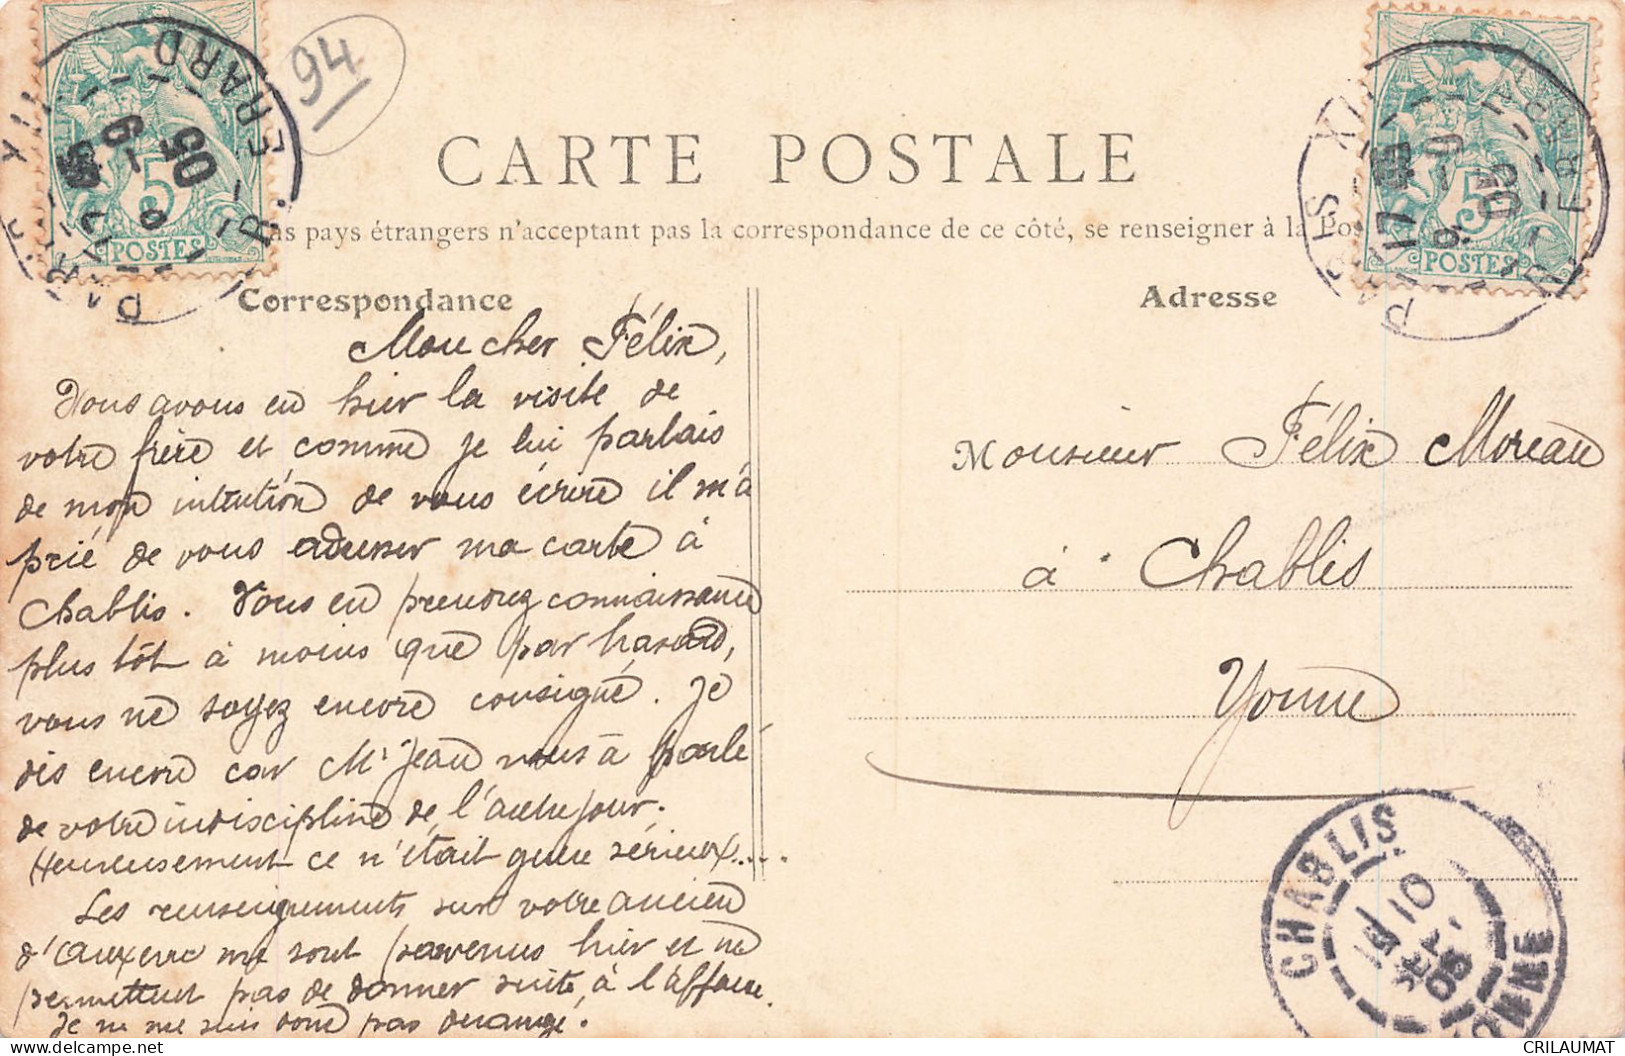 94
CARTE POSTALE
as pays étrangers n'acceptant pas la correspondance de ce côté, se renseigner à la Pos
Correspondance
Mon cher Félix,
Nous avons eu hier la visite de
votre frère et comme je lui parlais
de mon intention de vous écrire il m'a
prié de vous adresser ma carte à
Chablis. Vous en prendrez connaissance
plus tôt à moins que par hasard,
vous ne soyez encore consigné. Je
dis encore car Mr Jean nous a parlé
de votre indiscipline de l'autre jour.
Heureusement ce n'était guère sérieux....
Les renseignements sur votre ancien
d'Auxerre me sont parvenus hier et ne
permettent pas de donner suite à l'affaire.
Je ne me suis donc pas dérangé.
Adresse
Monsieur Félix Moreau
à Chablis
Yonne
POSTES
5
PARIS XII
R. ERARD
17
9 - 9
05
POSTES
5
PARIS XII
17
CHABLIS
10
SEPT
05
YONNE
CRILAUMAT